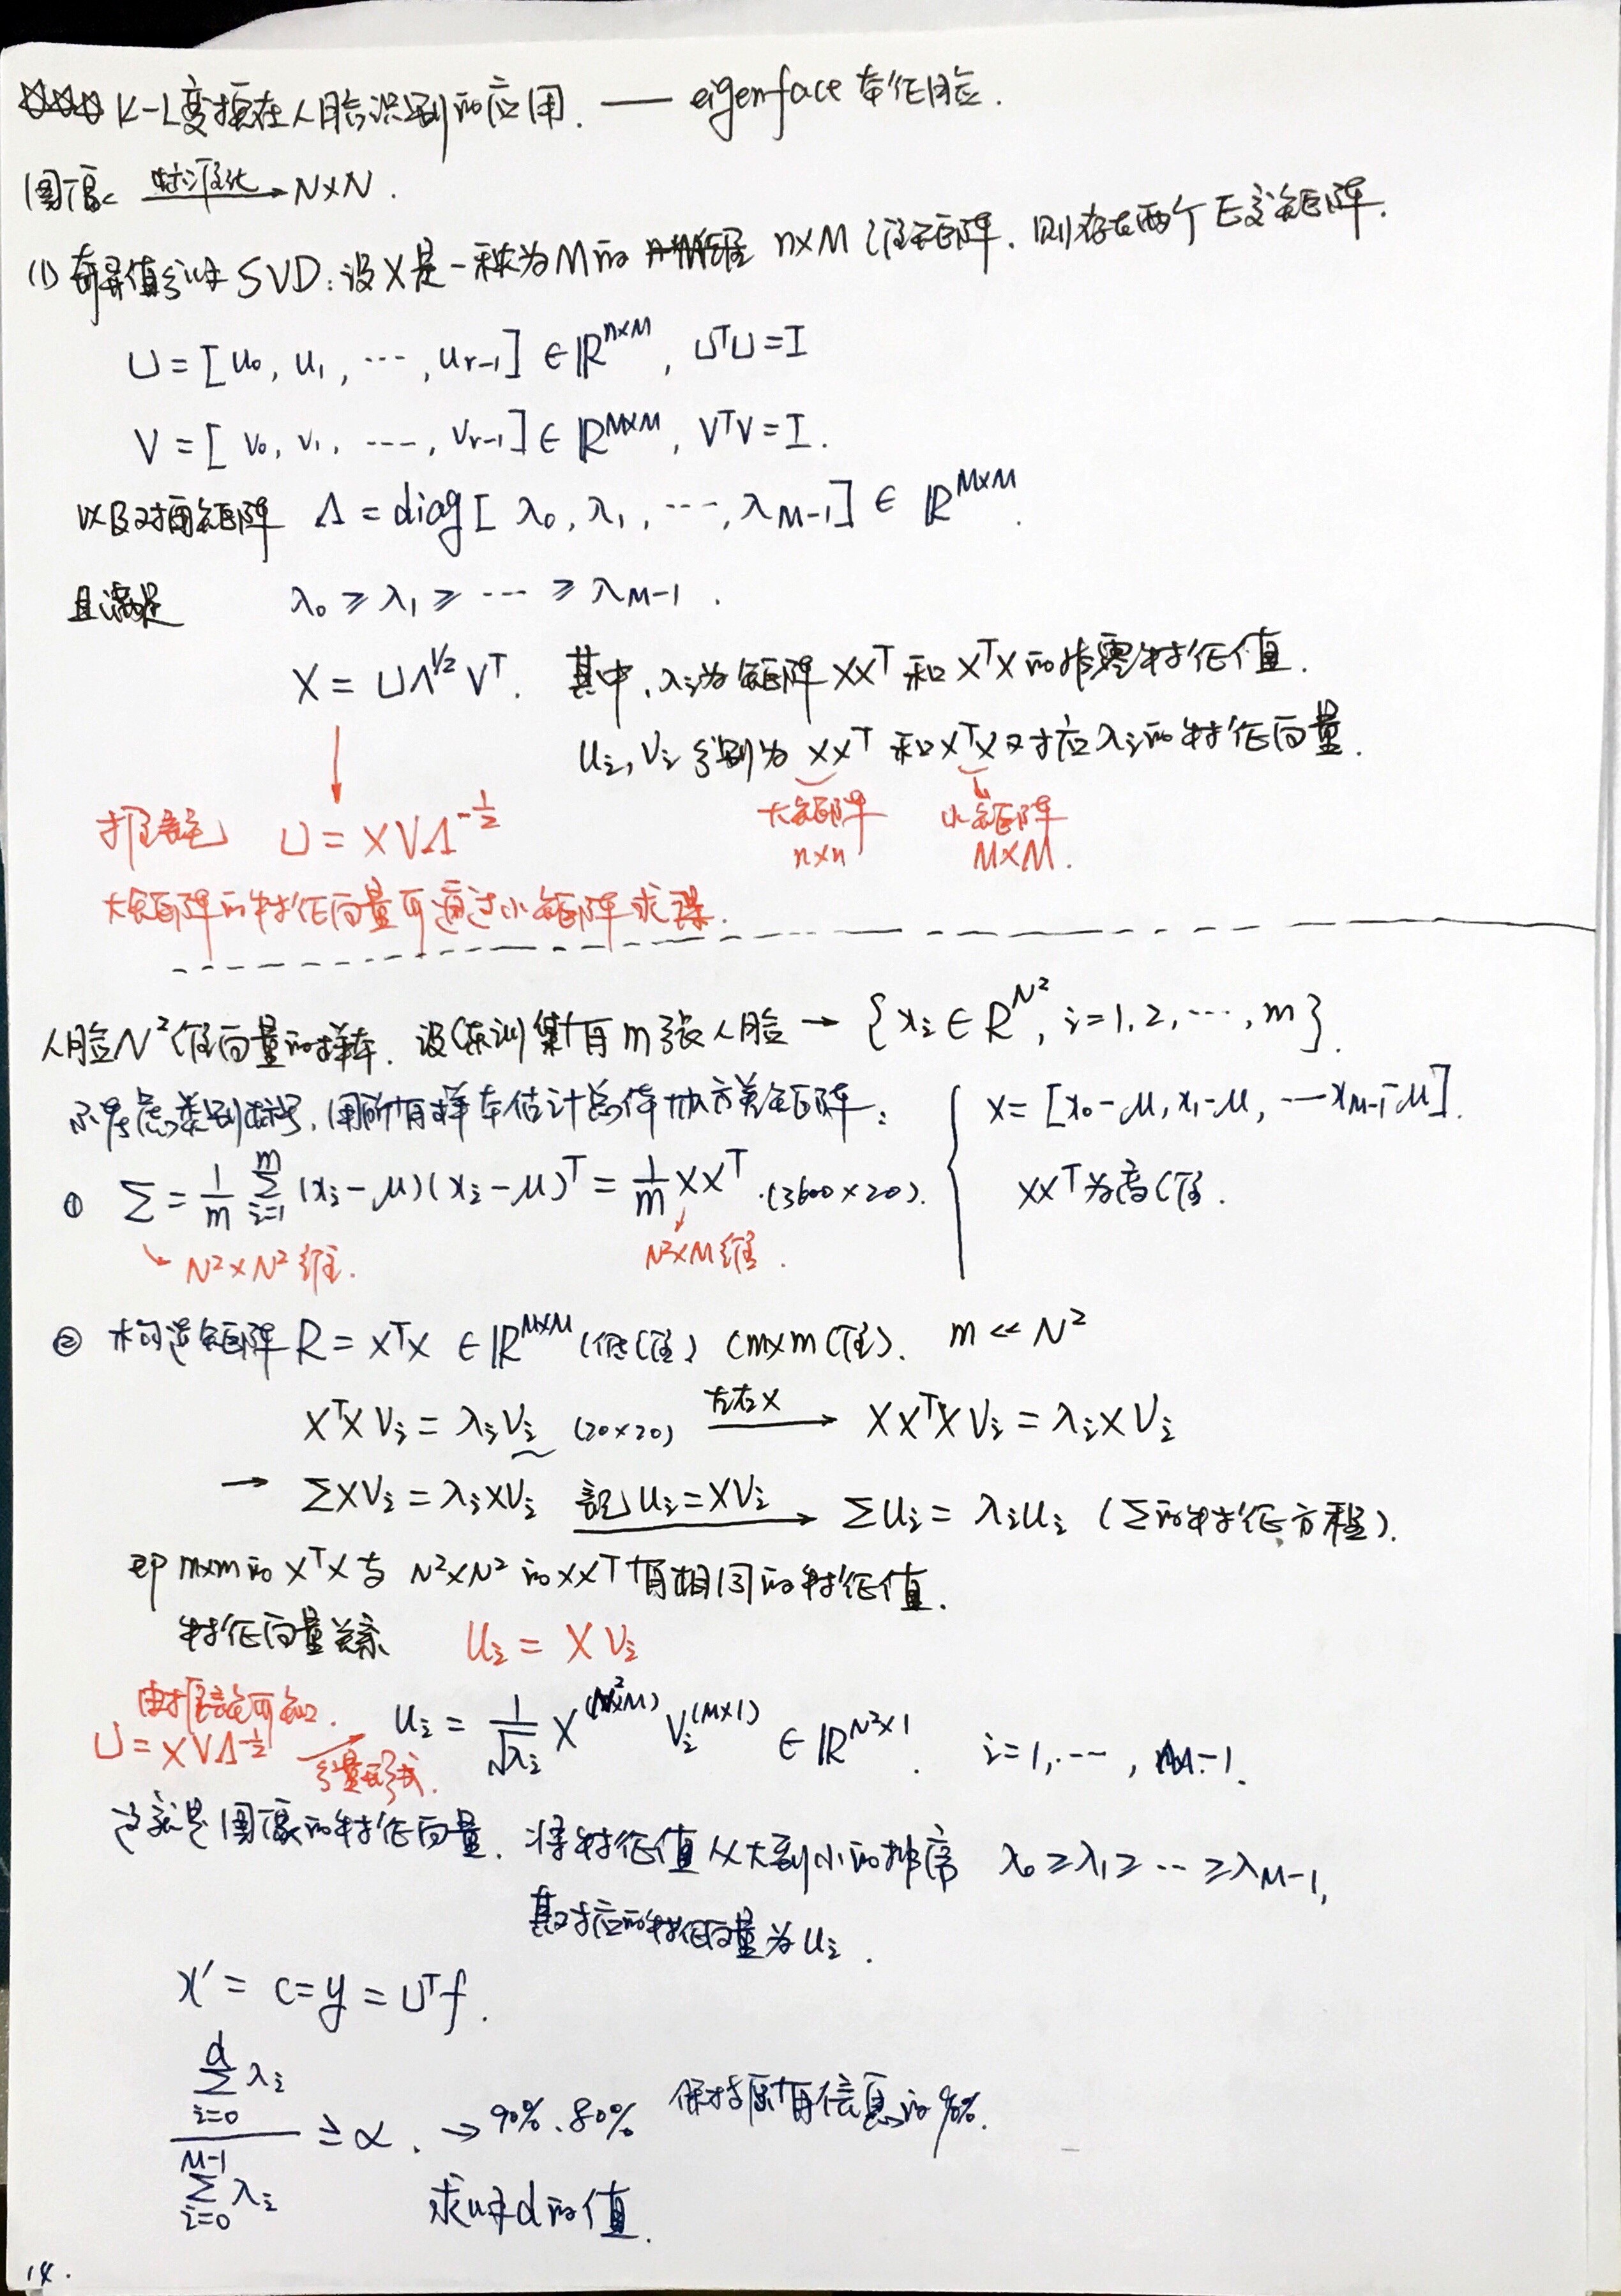 K-L变换在人脸识别的应用. —— eigenface 本征脸.
图像 标准化→ N×N.
(1) 奇异值分解 SVD: 设X是一秩为M的 n×M维矩阵. 则存在两个正交矩阵.
U = [u₀, u₁, ⋯, uᵣ₋₁] ∈ ℝⁿˣᴹ, UᵀU = I
V = [v₀, v₁, ⋯, vᵣ₋₁] ∈ ℝᴹˣᴹ, VᵀV = I.
以及对角矩阵 Λ = diag[λ₀, λ₁, ⋯, λ_{M-1}] ∈ ℝᴹˣᴹ.
且满足 λ₀ ≥ λ₁ ≥ ⋯ ≥ λ_{M-1}.
X = UΛ^{1/2}Vᵀ. 其中, λᵢ为矩阵 XXᵀ 和 XᵀX 的非零特征值.
uᵢ, vᵢ 分别为 XXᵀ 和 XᵀX 对应 λᵢ 的特征向量.
↓
大矩阵 n×n
小矩阵 M×M.
推论 U = XVΛ^{-1/2}
大矩阵的特征向量可通过小矩阵求得.
人脸N²维向量的样本. 设训练集有m张人脸 → {xᵢ ∈ R^{N²}, i=1,2,⋯,m}.
不考虑类别标号, 用所有样本估计总体协方差矩阵:
X = [x₀-μ, x₁-μ, ⋯x_{M-1}-μ].
XXᵀ为高维.
① Σ = 1/m Σ_{i=1}^{m} (xᵢ-μ)(xᵢ-μ)ᵀ = 1/m XXᵀ. (3600×20).
↘ N²×N² 维.
N²×M 维.
② 构造矩阵 R = XᵀX ∈ ℝᴹˣᴹ (低维) (m×m维). m << N²
XᵀXvᵢ = λᵢvᵢ (20×20) 左右X→ XXᵀXvᵢ = λᵢXvᵢ
→ ΣXvᵢ = λᵢXvᵢ 记uᵢ=Xvᵢ→ Σuᵢ = λᵢuᵢ (Σ的特征方程).
即 m×m的 XᵀX 与 N²×N² 的XXᵀ有相同的特征值.
特征向量关系 uᵢ = Xvᵢ
由推论可知.
U = XVΛ^{-1/2} 分量形式.→ uᵢ = 1/√λᵢ X^{(N²×M)} vᵢ^{(M×1)} ∈ ℝ^{N²×1}. i=1,⋯, M-1.
这就是图像的特征向量. 将特征值从大到小的排序 λ₀ ≥ λ₁ ≥ ⋯ ≥ λ_{M-1},
其对应的特征向量为uᵢ.
x' = c = y = Uᵀf.
Σ_{i=0}^{d} λᵢ / Σ_{i=0}^{M-1} λᵢ ≥ α. → 90%、80% 保持原有信息的90%.
求出d的值.
14.